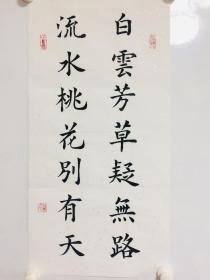 白雲芳草疑無路
流水桃花別有天